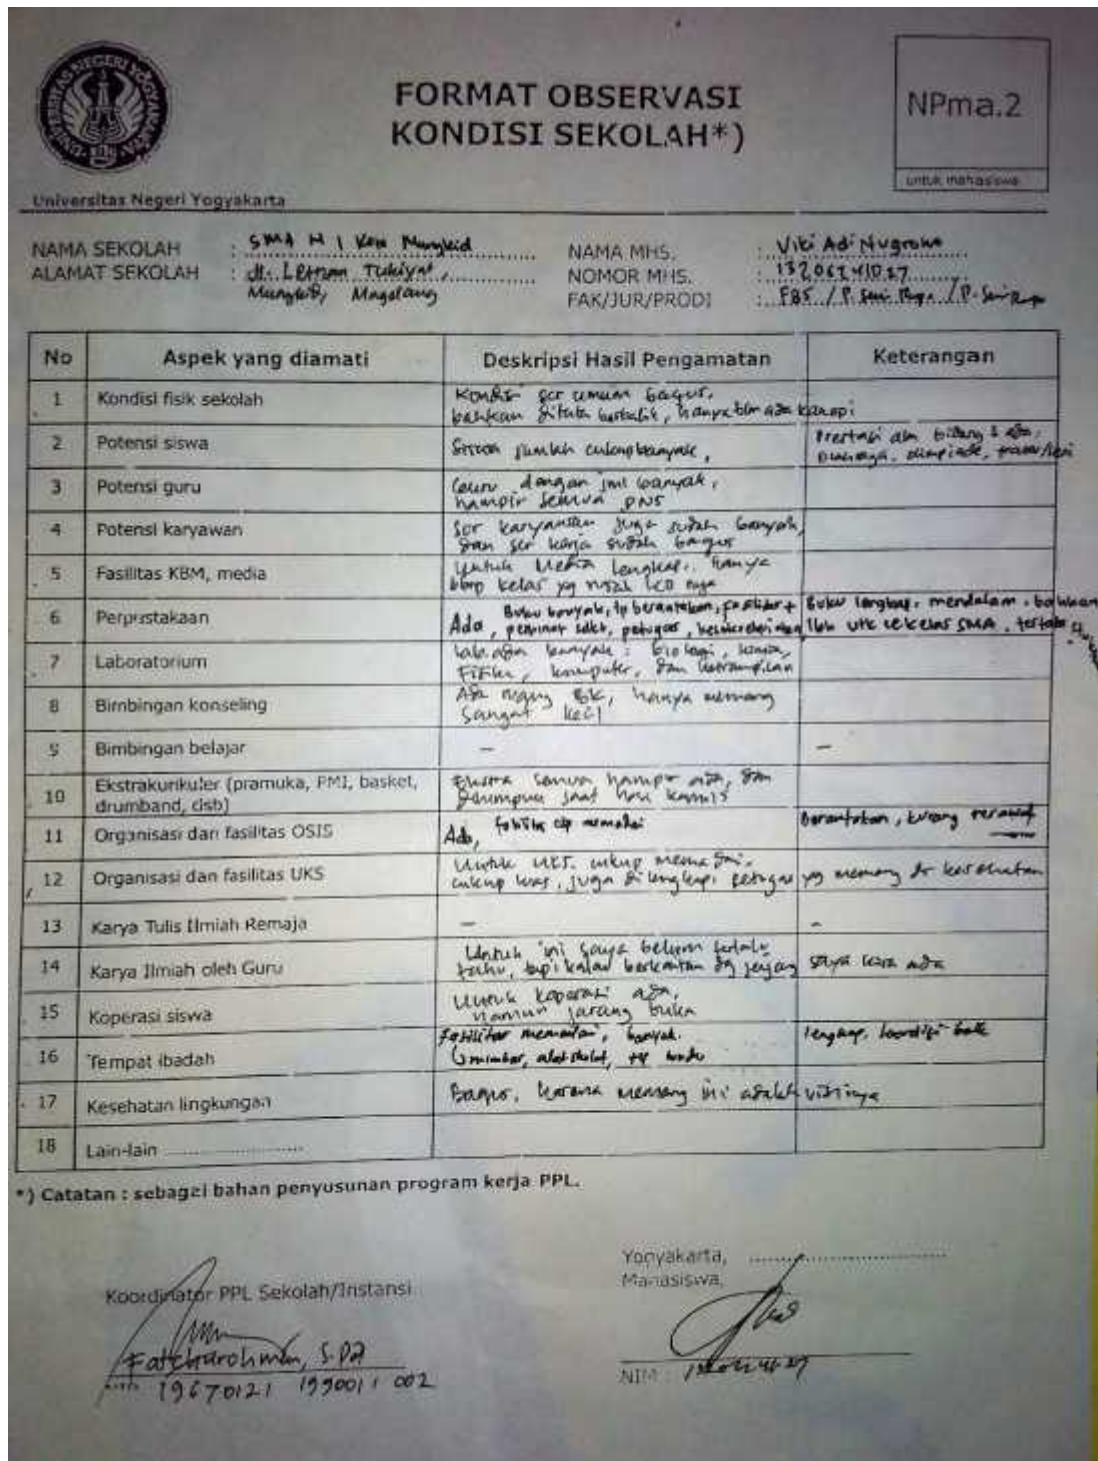 UNIVERSITAS NEGERI YOGYAKARTA
FORMAT OBSERVASI
KONDISI SEKOLAH*)
NPma.2
untuk mahasiswa
Universitas Negeri Yogyakarta
NAMA SEKOLAH : SMA N 1 Kota Mungkid
ALAMAT SEKOLAH : Jl. Letnan Tukiyat,
Mungkid, Magelang
NAMA MHS. : Viki Adi Nugroho
NOMOR MHS. : 13206241027
FAK/JUR/PRODI : FBS / P. Seni Rupa / P. Seni Rupa
No Aspek yang diamati Deskripsi Hasil Pengamatan Keterangan
1 Kondisi fisik sekolah Kondisi scr umum bagus,
bahkan hanya blm ada kanopi
2 Potensi siswa jumlah cukup banyak, Prestasi dlm bidang ada,
olahraga, olimpiade,
3 Potensi guru Guru dengan jml banyak,
hampir semua PNS
4 Potensi karyawan Scr karyawan juga sudah banyak,
dan scr kerja sudah bagus
5 Fasilitas KBM, media Untuk Media lengkap, hanya
bbrp kelas yg rusak LCD nya
6 Perpustakaan Buku banyak, tp berantakan, fasilitas +
Ada, petugas, Buku lengkap, mendalam, bahkan
utk sekelas SMA, tertata
7 Laboratorium Lab. ada banyak : biologi, kimia,
Fisika, komputer, dan ketrampilan
8 Bimbingan konseling Ada ruang BK, hanya memang
sangat kecil
9 Bimbingan belajar - -
10 Ekstrakurikuler (pramuka, PMI, basket,
drumband, dsb) Ekstra semua hampir ada, dan
saat hari kamis
11 Organisasi dan fasilitas OSIS Ada, fasilitas memadai Berantakan, kurang terawat
12 Organisasi dan fasilitas UKS Untuk UKS. cukup memadai,
cukup luas, juga dilengkapi petugas yg memang dr kesehatan
13 Karya Tulis Ilmiah Remaja - -
14 Karya Ilmiah oleh Guru Untuk ini saya belum terlalu
tahu, tapi kalau berkaitan dg jenjang saya kira ada
15 Koperasi siswa Untuk koperasi ada,
namun jarang buka
16 Tempat ibadah Fasilitas memadai, banyak. lengkap, kondisi baik
mimbar, alat sholat, wudu
17 Kesehatan lingkungan Bagus, karena memang ini adalah visinya
18 Lain-lain ..............................
*) Catatan : sebagai bahan penyusunan program kerja PPL.
Yogyakarta, ..............................
Koordinator PPL Sekolah/Instansi
Mahasiswa,
Fatchurohman, S.Pd
19670121 199001 1 002
NIM : 13206241027